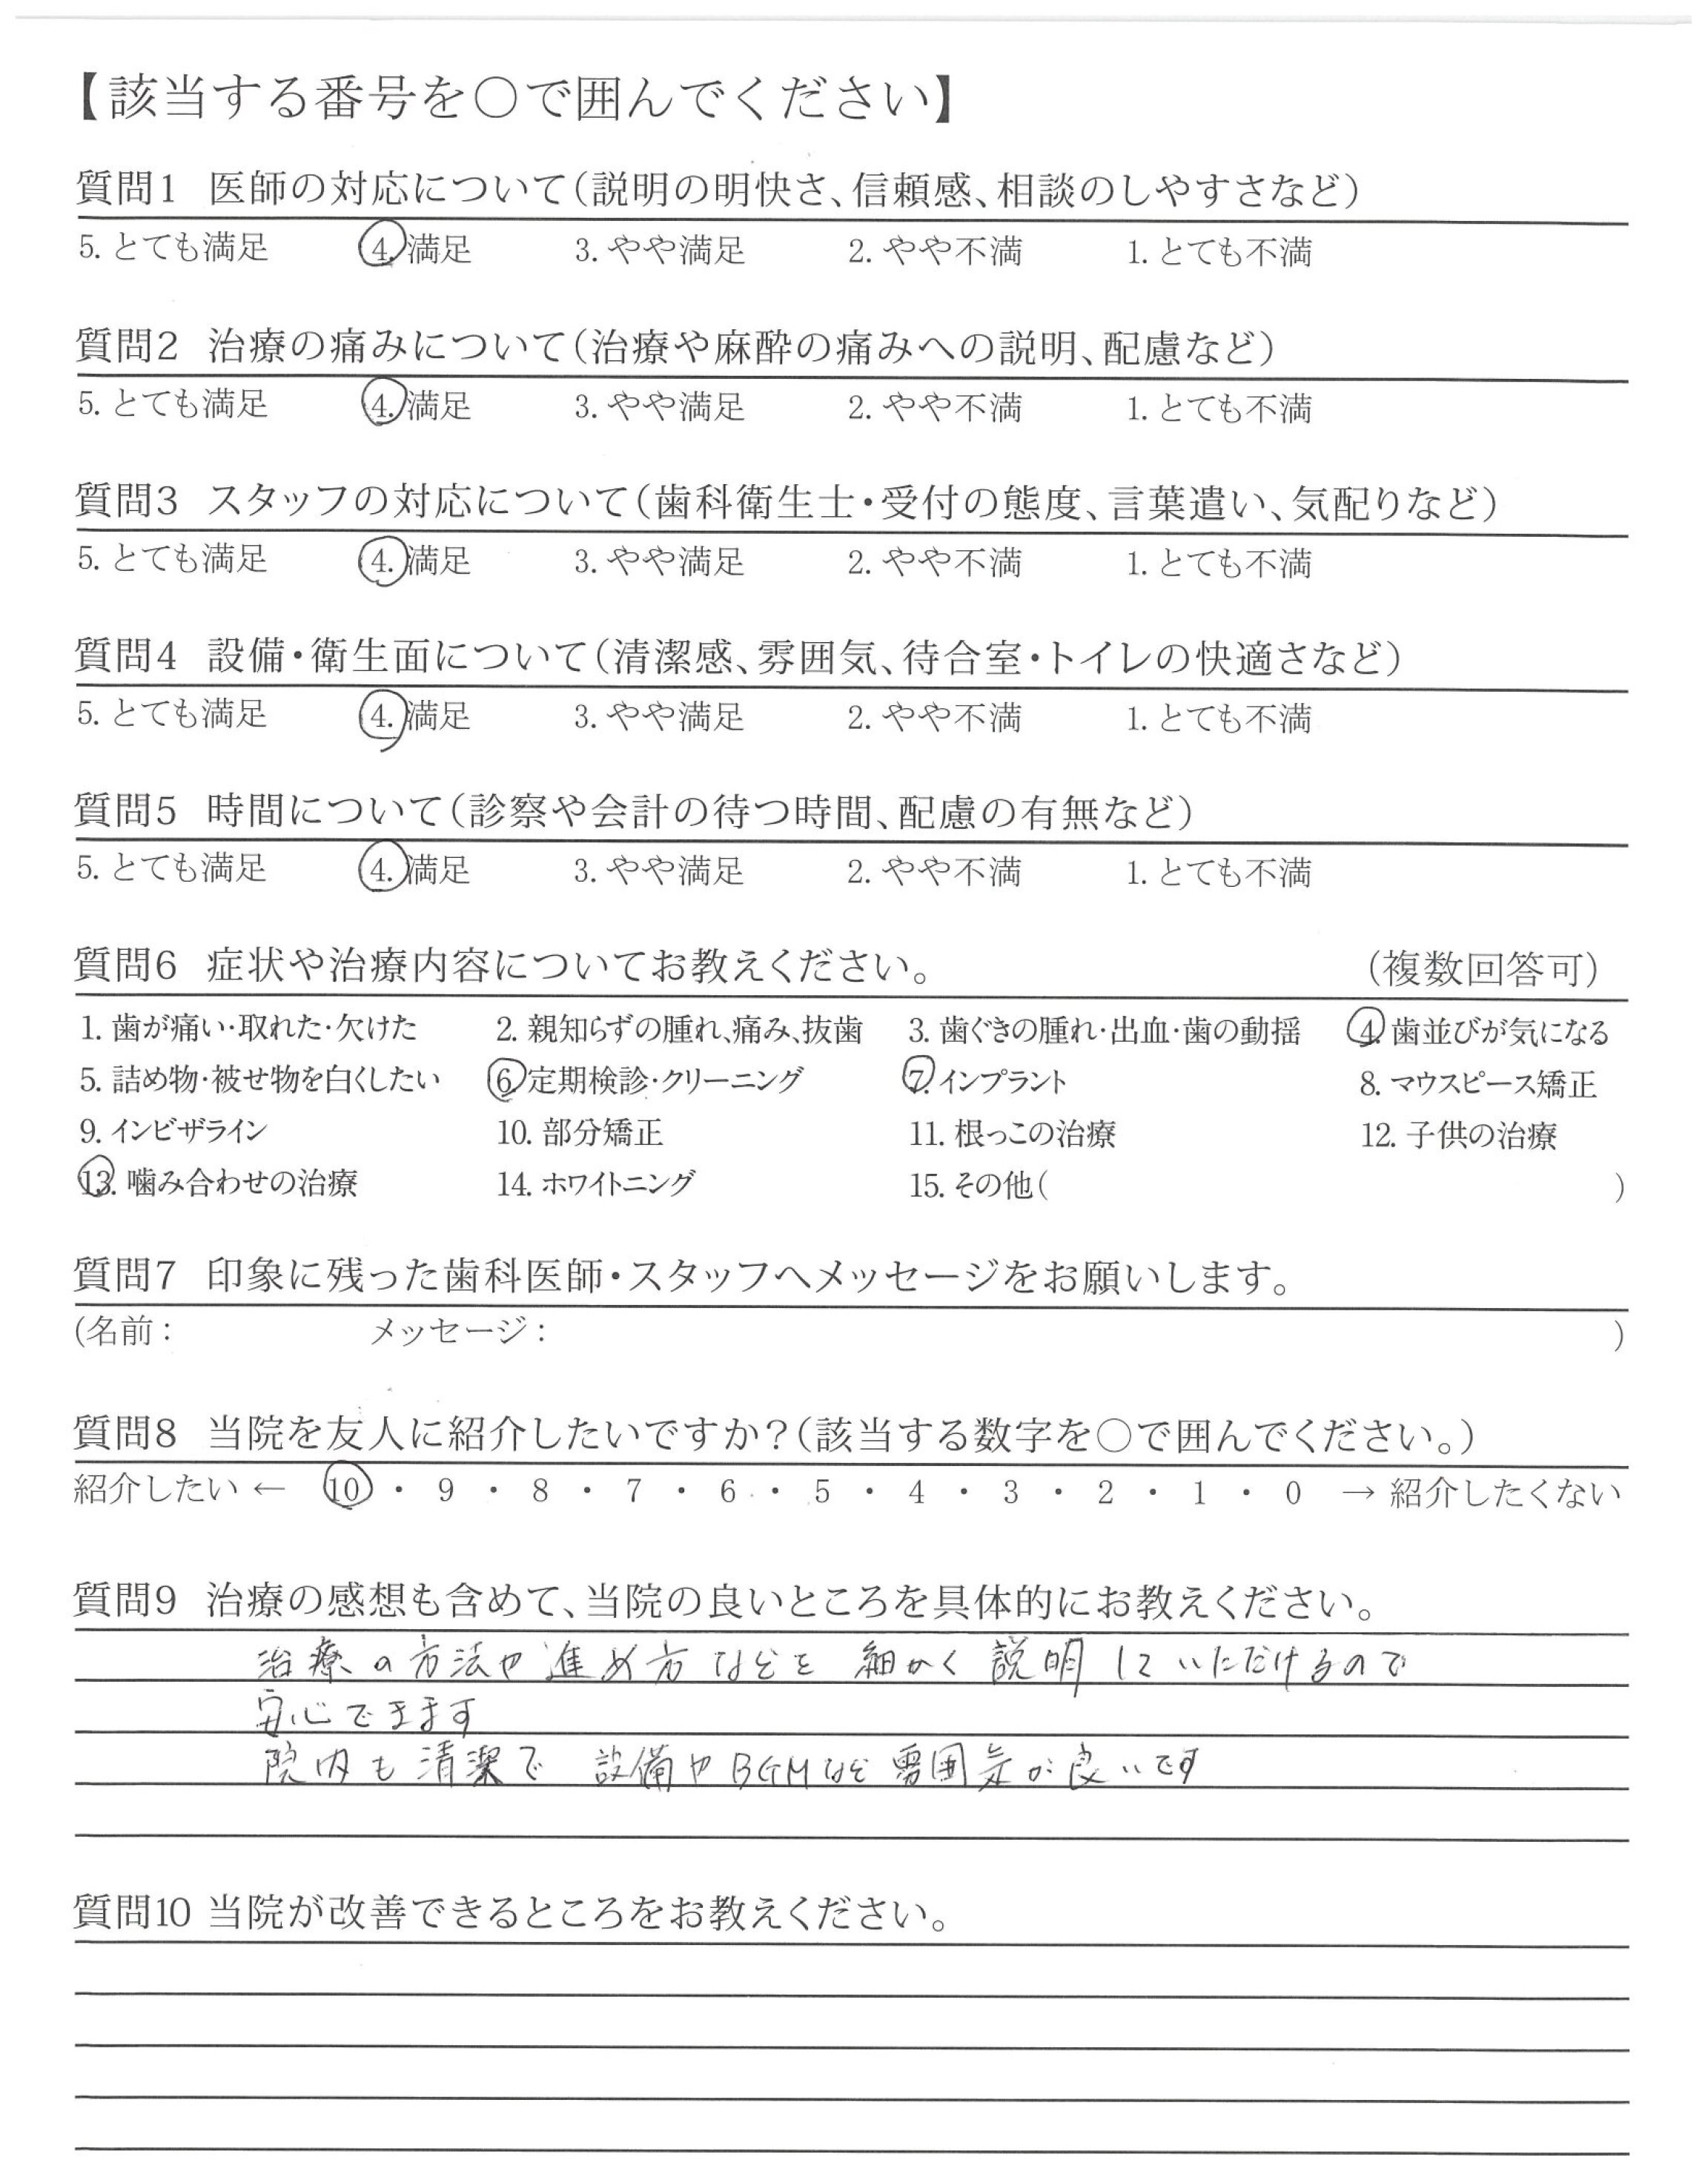 【該当する番号を〇で囲んでください】
質問1 医師の対応について(説明の明快さ、信頼感、相談のしやすさなど)
5. とても満足 4. 満足 3. やや満足 2. やや不満 1. とても不満
質問2 治療の痛みについて(治療や麻酔の痛みへの説明、配慮など)
5. とても満足 4. 満足 3. やや満足 2. やや不満 1. とても不満
質問3 スタッフの対応について(歯科衛生士・受付の態度、言葉遣い、気配りなど)
5. とても満足 4. 満足 3. やや満足 2. やや不満 1. とても不満
質問4 設備・衛生面について(清潔感、雰囲気、待合室・トイレの快適さなど)
5. とても満足 4. 満足 3. やや満足 2. やや不満 1. とても不満
質問5 時間について(診察や会計の待つ時間、配慮の有無など)
5. とても満足 4. 満足 3. やや満足 2. やや不満 1. とても不満
質問6 症状や治療内容についてお教えください。 (複数回答可)
1. 歯が痛い・取れた・欠けた 2. 親知らずの腫れ、痛み、抜歯 3. 歯ぐきの腫れ・出血・歯の動揺 4. 歯並びが気になる
5. 詰め物・被せ物を白くしたい 6. 定期検診・クリーニング 7. インプラント 8. マウスピース矯正
9. インビザライン 10. 部分矯正 11. 根っこの治療 12. 子供の治療
13. 噛み合わせの治療 14. ホワイトニング 15. その他( )
質問7 印象に残った歯科医師・スタッフへメッセージをお願いします。
(名前: メッセージ: )
質問8 当院を友人に紹介したいですか?(該当する数字を〇で囲んでください。)
紹介したい ← 10 ・ 9 ・ 8 ・ 7 ・ 6 ・ 5 ・ 4 ・ 3 ・ 2 ・ 1 ・ 0 → 紹介したくない
質問9 治療の感想も含めて、当院の良いところを具体的にお教えください。
治療の方法や進め方などを 細かく説明していただけるので
安心できます
院内も清潔で 設備やBGMなど雰囲気が良いです
質問10 当院が改善できるところをお教えください。